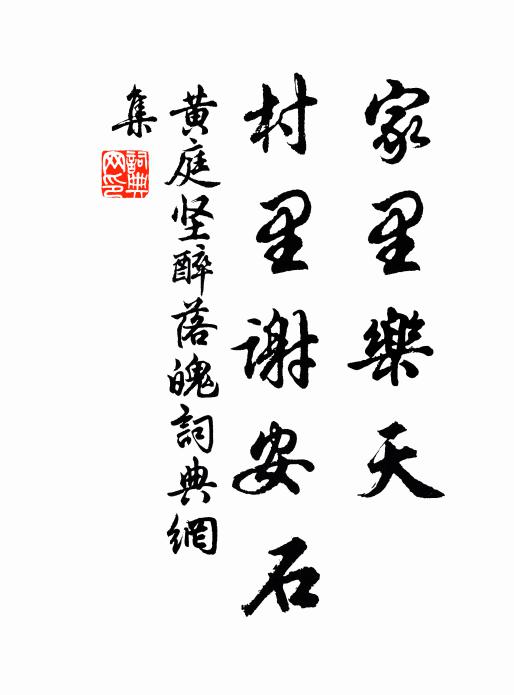 家里樂天
村里謝安石
黄庭坚醉落魄詞典網
集
詞典網印